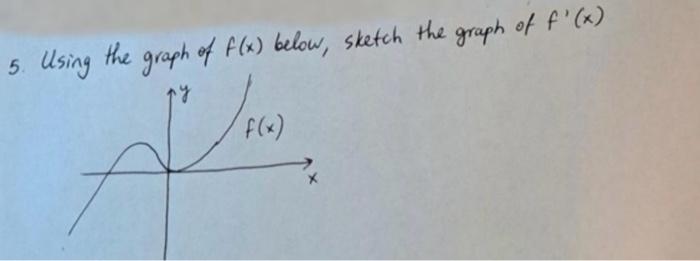 5. Using the graph of f(x) below, sketch the graph of f'(x)
y
f(x)
x